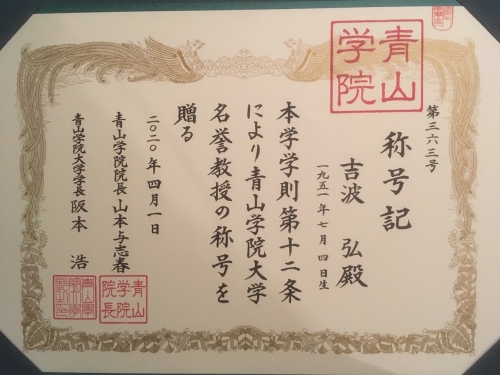 青山学院
第三六三号
称号記
吉波 弘殿
一九五一年七月四日生
本学学則第十二条
により青山学院大学
名誉教授の称号を
贈る
二〇二〇年四月一日
青山学院院長 山本与志春
青山学院大学学長 阪本 浩
青山学院院長